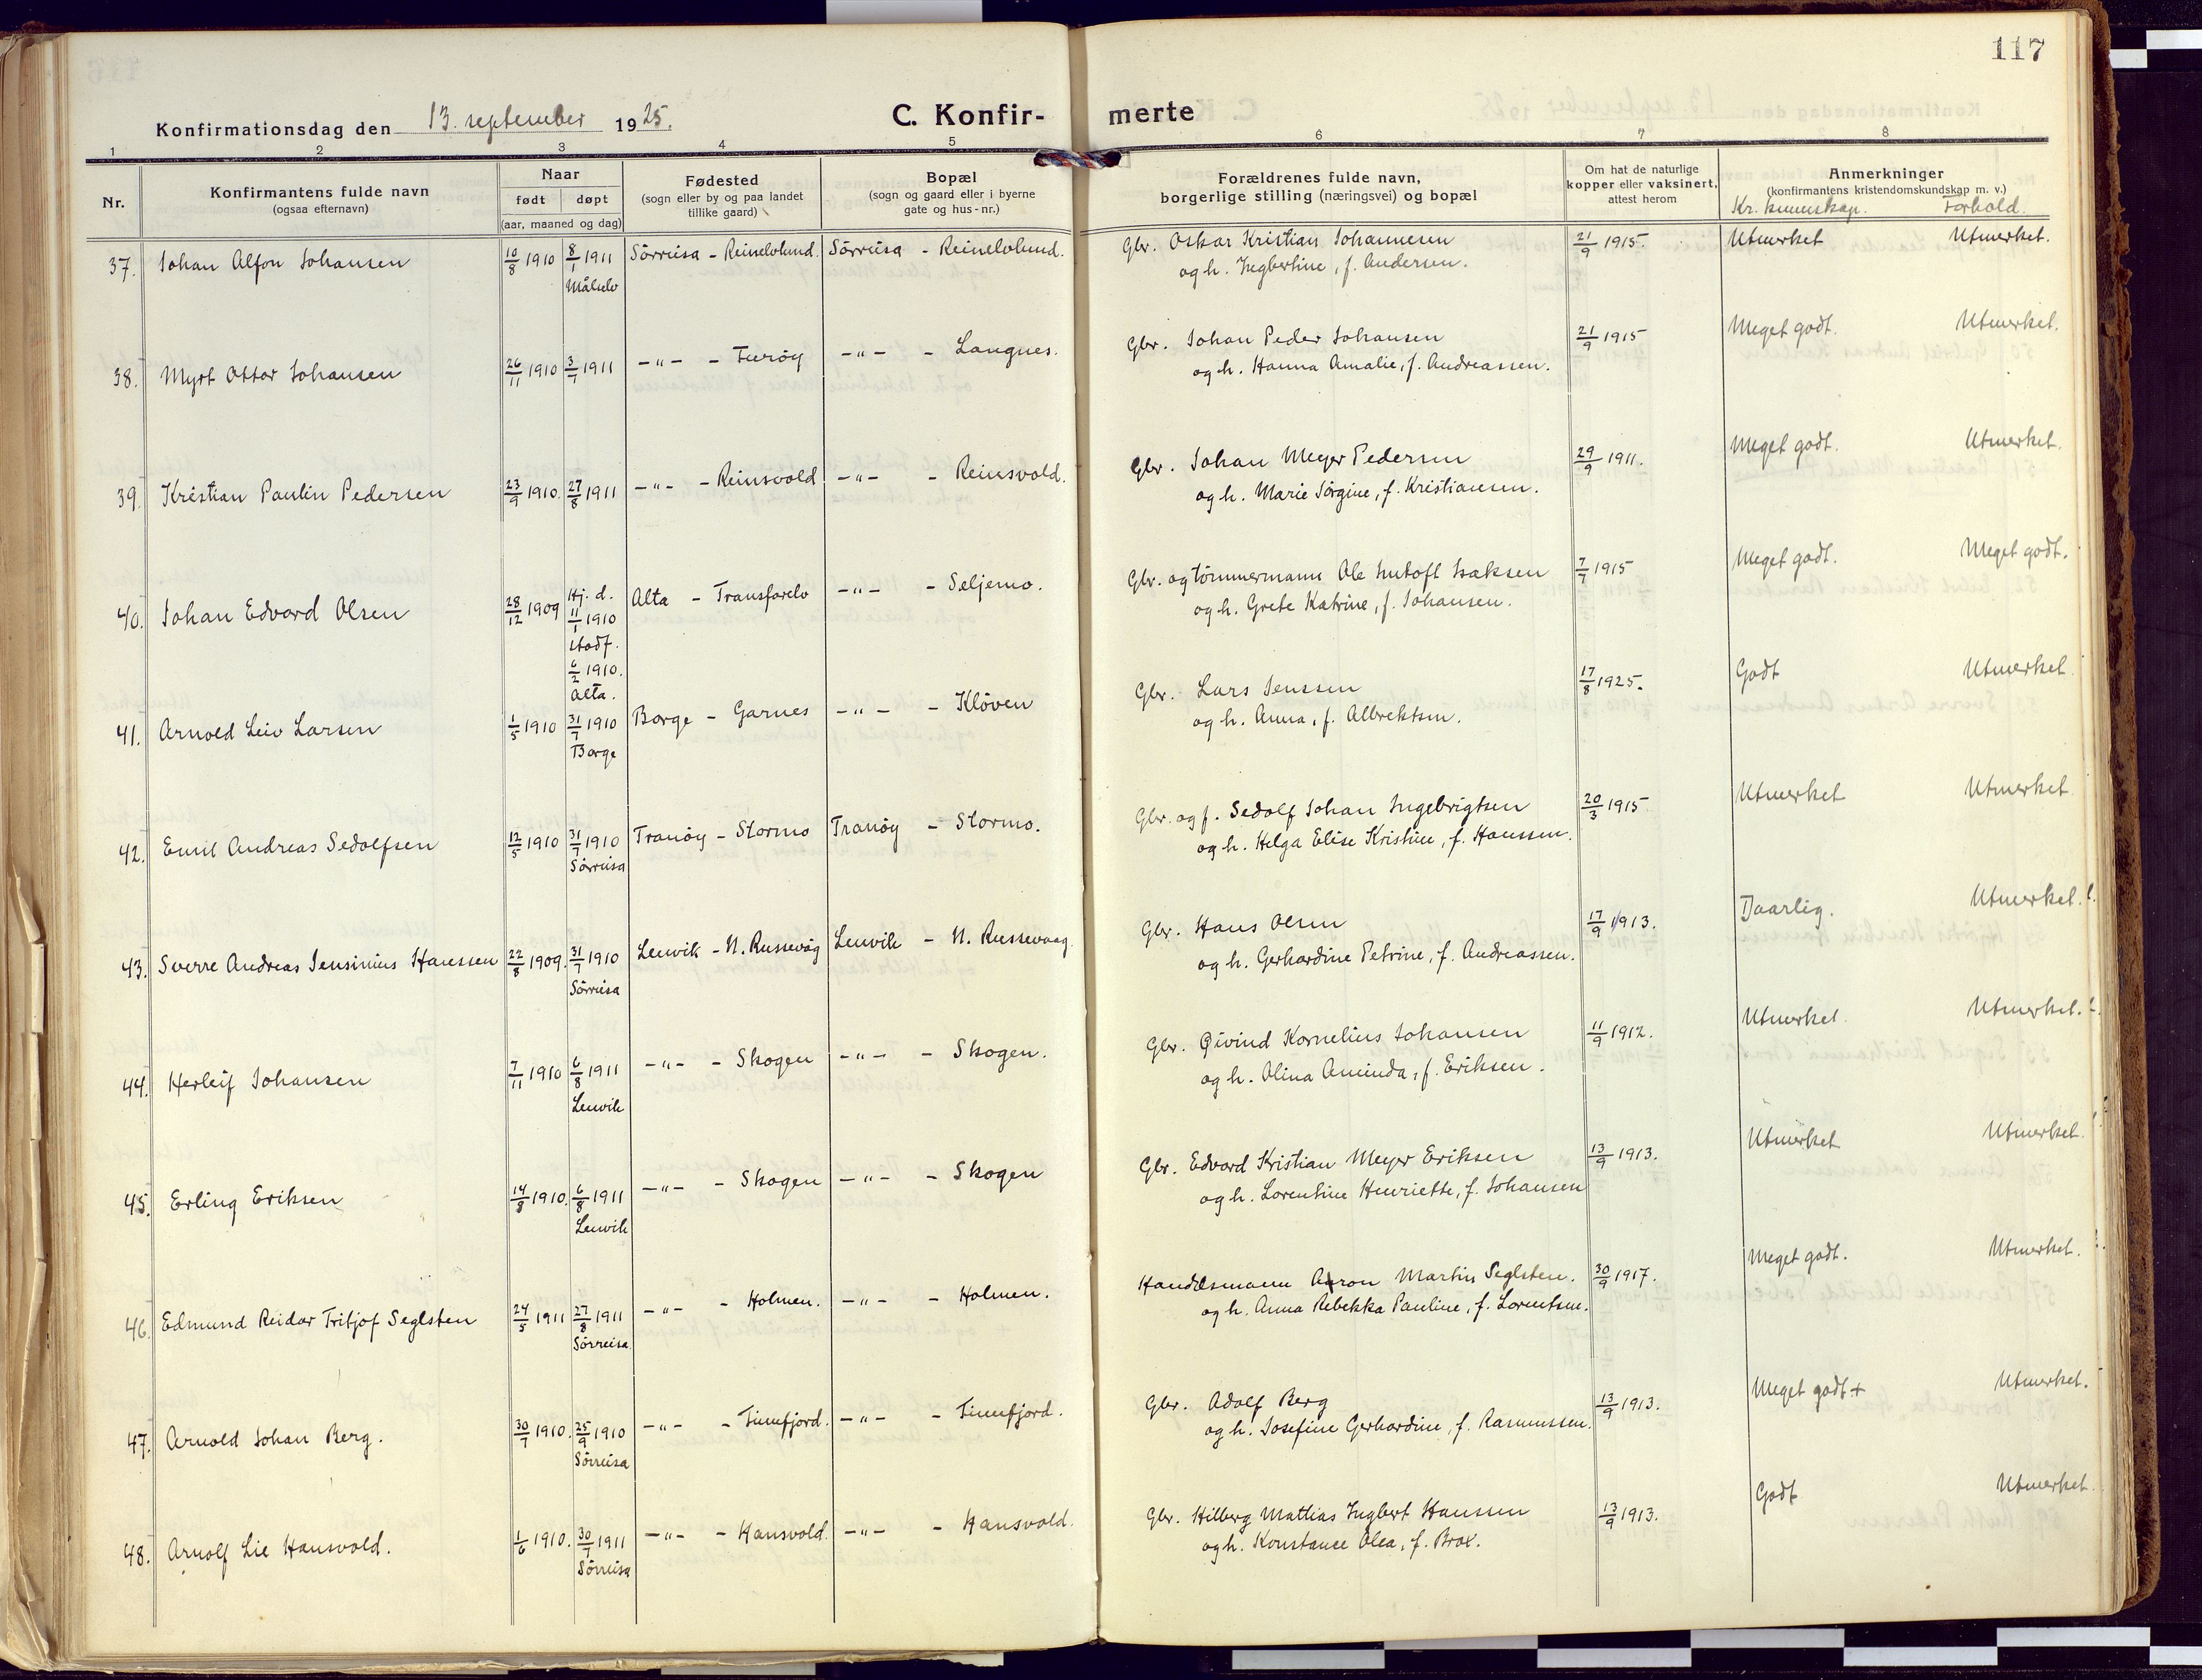 117
Konfirmationsdag den 13. september 1925. C. Konfirmerte
1 2 3 4 5 6 7 8
Nr.
Konfirmantens fulde navn
(ogsaa efternavn)
Naar
født døpt
(aar, maaned og dag)
Fødested
(sogn eller by og paa landet
tillike gaard)
Bopæl
(sogn og gaard eller i byerne
gate og hus-nr.)
Forældrenes fulde navn,
borgerlige stilling (næringsvei) og bopæl
Om hat de naturlige
kopper eller vaksinert,
attest herom
Anmerkninger
(konfirmantens kristendomskundskap m. v.)
Kr. kunnskap. Forhold.
37. Johan Alfon Johansen 10/8 1910 8/1 1911 Sörreisa - Reinelvlund. Sörreisa - Reinelvlund. Gbr. Oskar Kristian Johannesen 21/9 1915. Utmerket Utmerket.
Målselv og h. Ingbertine, f. Andersen.
38. Myrt Ottar Johansen 26/11 1910 3/7 1911 -"- - Furöy -"- - Langnes. Gbr. Johan Peder Johansen 21/9 1915 Meget godt. Utmerket.
og h. Hanna Amalie, f. Andreassen.
39. Kristian Paulin Pedersen 23/9 1910. 27/8 1911 -"- - Reinsvold -"- - Reinsvold. Gbr. Johan Meyer Pedersen 29/9 1911. Meget godt. Utmerket.
og h. Marie Jörgine, f. Kristiansen.
40. Johan Edvard Olsen 28/12 1909 Hj. d. 11/1 1910 Alta - Transfarelv -"- - Seljemo. Gbr. og tömmermann Ole Intoft Isaksen 7/7 1915 Meget godt. Meget godt.
stadf. og h. Grete Katrine, f. Johansen.
6/2 1910.
Alta.
41. Arnold Leiv Larsen 1/5 1910 31/7 1910 Borge - Garnes -"- - Klöven Gbr. Lars Jenssen 17/8 1925. Godt Utmerket
Borge og h. Anna, f. Albrektsen.
42. Emil Andreas Sedolfsen 12/5 1910 31/7 1910 Tranöy - Stormo Tranöy - Stormo. Gbr. og f. Sedolf Johan Ingebrigtsen 20/3 1915 Utmerket Utmerket
Sörreisa og h. Helga Elise Kristine, f. Hanssen.
43. Sverre Andreas Jensinius Hanssen 22/8 1909. 31/7 1910 Lenvik - N. Russevåg Lenvik - N. Russevaag Gbr. Hans Olsen 17/9 1913. Daarlig. Utmerket.
Sörreisa og h. Gerhardine Petrine, f. Andreassen.
44. Herleif Johansen 7/11 1910 6/8 1911 -"- - Skogen -"- - Skogen. Gbr. Øivind Kornelius Johansen 11/9 1912. Utmerket. Utmerket.
Lenvik og h. Olina Aminda, f. Eriksen.
45. Erling Eriksen 14/8 1910. 6/8 1911 -"- - Skogen -"- - Skogen Gbr. Edvard Kristian Meyer Eriksen 13/9 1913. Utmerket Utmerket.
Lenvik og h. Lorentine Henriette, f. Johansen
46. Edmund Reidar Tritjof Seglsten 24/5 1911 27/8 1911 -"- - Holmen. -"- - Holmen. Handelsmann Aron Martin Seglsten. 30/9 1917. Meget godt. Utmerket.
Sörreisa. og h. Anna Rebekka Pauline, f. Lorentsen.
47. Arnold Johan Berg. 30/7 1910. 25/9 1910 -"- - Finnfjord. -"- - Finnfjord. Gbr. Adolf Berg 13/9 1913. Meget godt + Utmerket.
Sörreisa og h. Josefine Gerhardine, f. Rasmussen.
48. Arnolf Lie Hansvold. 1/6 1910. 30/7 1911 -"- - Hansvold. -"- - Hansvold. Gbr. Hilberg Mattias Ingbert Hanssen 13/9 1913. Godt Utmerket.
Sörreisa og h. Konstance Olea, f. Brox.